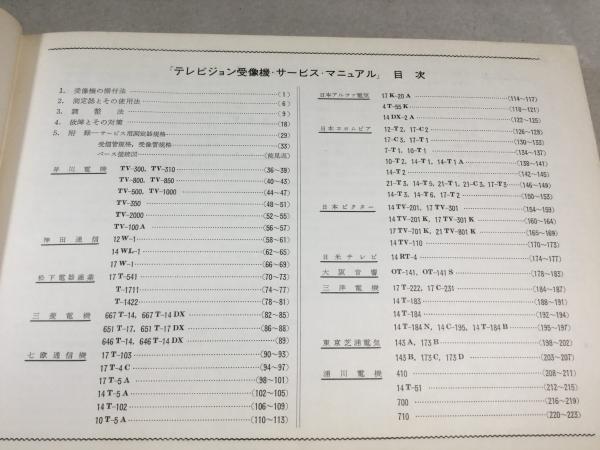 「テレビジョン受像機・サービス・マニュアル」 目 次
1. 受像機の据付法 (1)
2. 測定器とその使用法 (6)
3. 調 整 法 (9)
4. 故障とその対策 (18)
5. 附 録―サービス用測定器規格 (29)
受信管規格，受像管規格 (33)
ベース接続図 (後見返)
早 川 電 機 TV-300，TV-310 (36〜39)
TV-800，TV-850 (40〜43)
TV-500，TV-1000 (44〜47)
TV-350 (48〜51)
TV-2000 (52〜55)
TV-100A (56〜57)
神 田 通 信 12W-1 (58〜61)
14WL-1 (62〜65)
17W-1 (66〜69)
松下電器産業 17T-541 (70〜73)
T-1711 (74〜77)
T-1422 (78〜81)
三 菱 電 機 667T-14，667T-14DX (82〜85)
651T-17，651T-17DX (86〜88)
646T-14，646T-14DX (89)
七欧通信機 17T-103 (90〜93)
17T-4C (94〜97)
17T-5A (98〜101)
14T-5A (102〜105)
14T-102 (106〜109)
10T-5A (110〜113)
日本アルファ電気 17K-20A (114〜117)
4T-55K (118〜121)
14DX-2A (122〜125)
日本コロムビア 12-T2，17-C2 (126〜128)
17-C3，17-T1 (130〜133)
7-T1，10-T1 (134〜137)
10-T2，14-T1，14-T1A (138〜141)
14-T2 (142〜145)
21-T3，14-T5，21-T1，21-C3，17-T3 (146〜149)
14-T3，14-T6，17-T2 (150〜153)
日本ビクター 14TV-201，17TV-301 (154〜159)
14TV-201K，17TV-301K (160〜164)
17TV-701K，21TV-801K (165〜169)
14TV-110 (170〜173)
日米テレビ 14RT-4 (174〜177)
大 阪 音 響 OT-141，OT-141S (178〜183)
三 洋 電 機 17T-222，17C-231 (184〜187)
14T-183 (188〜191)
14T-184 (192〜194)
14T-184N，14C-195，14T-184B (195〜197)
東京芝浦電気 143A，173B (198〜202)
143B，173C，173D (203〜207)
湧 川 電 機 410 (208〜211)
14T-51 (212〜215)
700 (216〜219)
710 (220〜223)